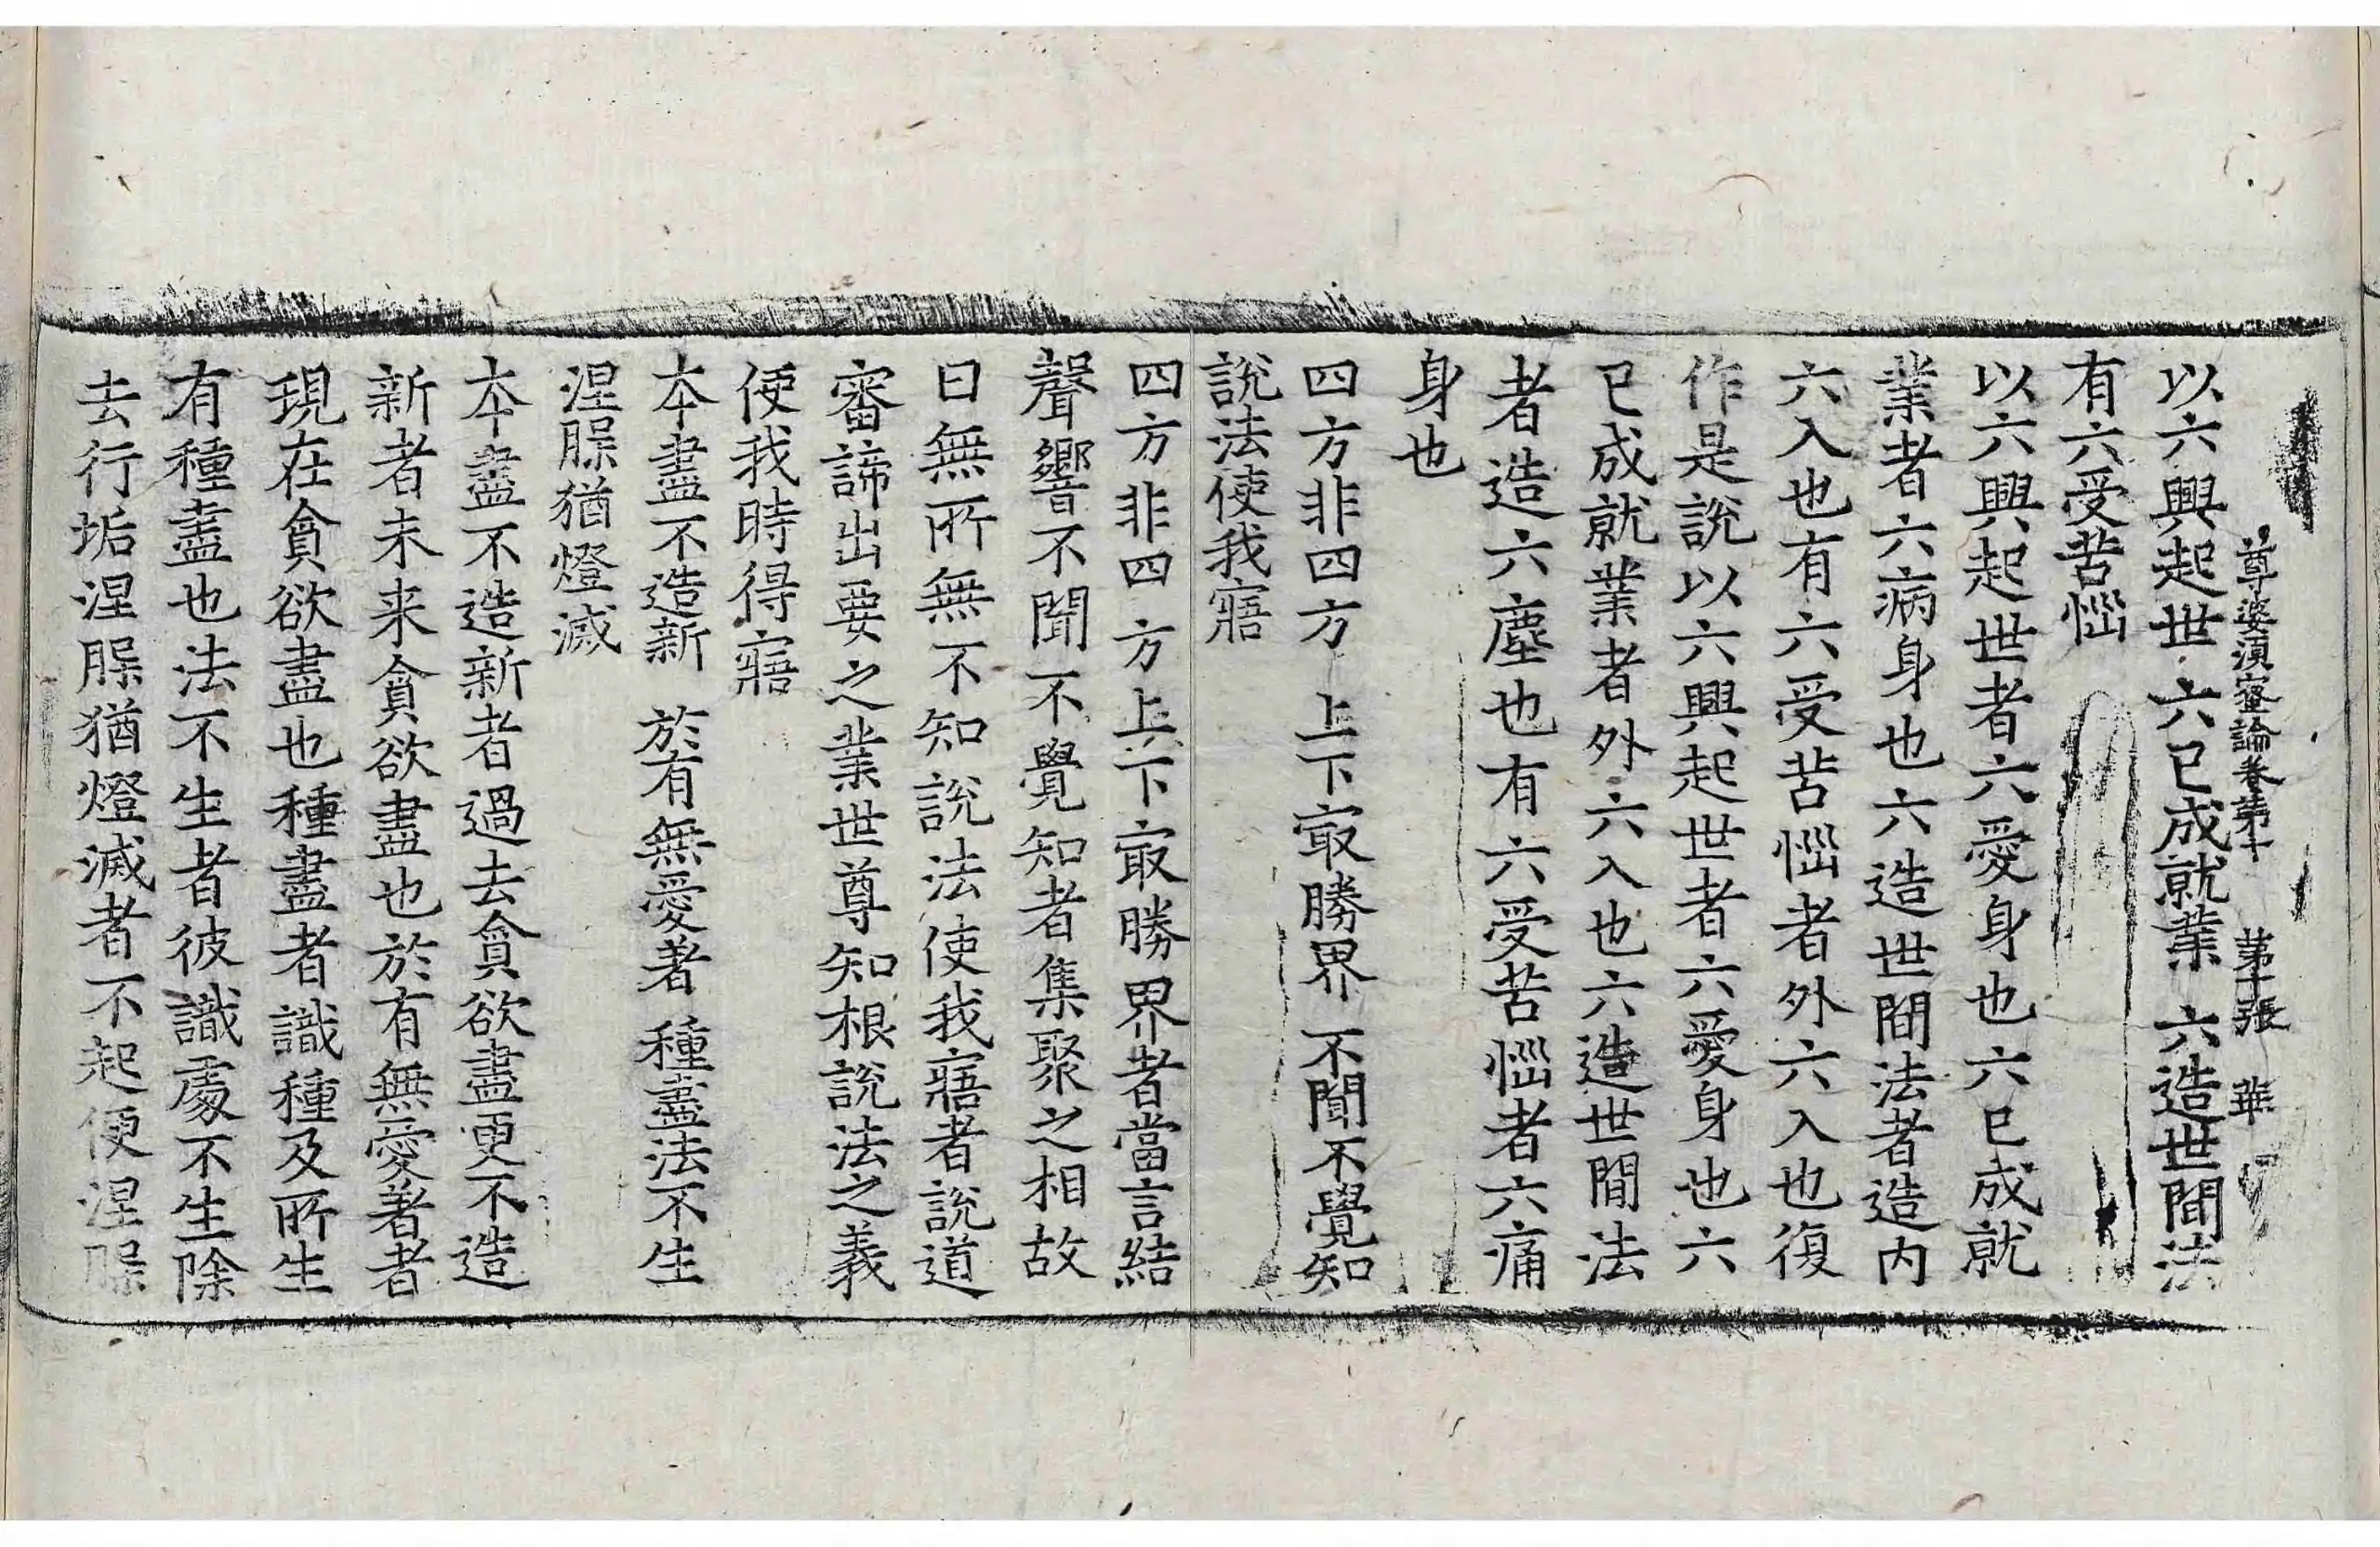 尊婆湏蜜論卷第十　第十張　華
以六興起世　六已成就業　六造世間法
有六受苦惱
以六興起世者六愛身也六已成就
業者六病身也六造世間法者造内
六入也有六受苦惱者外六入也復
作是說以六興起世者六愛身也六
已成就業者外六入也六造世間法
者造六塵也有六受苦惱者六痛
身也
四方非四方　上下㝡勝界　不聞不覺知
說法使我寤
四方非四方上下㝡勝界者當言結
聲響不聞不覺知者集聚之相故
曰無所無不知說法使我寤者說道
審諦出要之業世尊知根說法之義
便我時得寤
本盡不造新　於有無愛著　種盡法不生
涅脲猶燈滅
本盡不造新者過去貪欲盡更不造
新者未来貪欲盡也於有無愛著者
現在貪欲盡也種盡者識種及所生
有種盡也法不生者彼識處不生除
去行垢涅脲猶燈滅者不起便涅脲